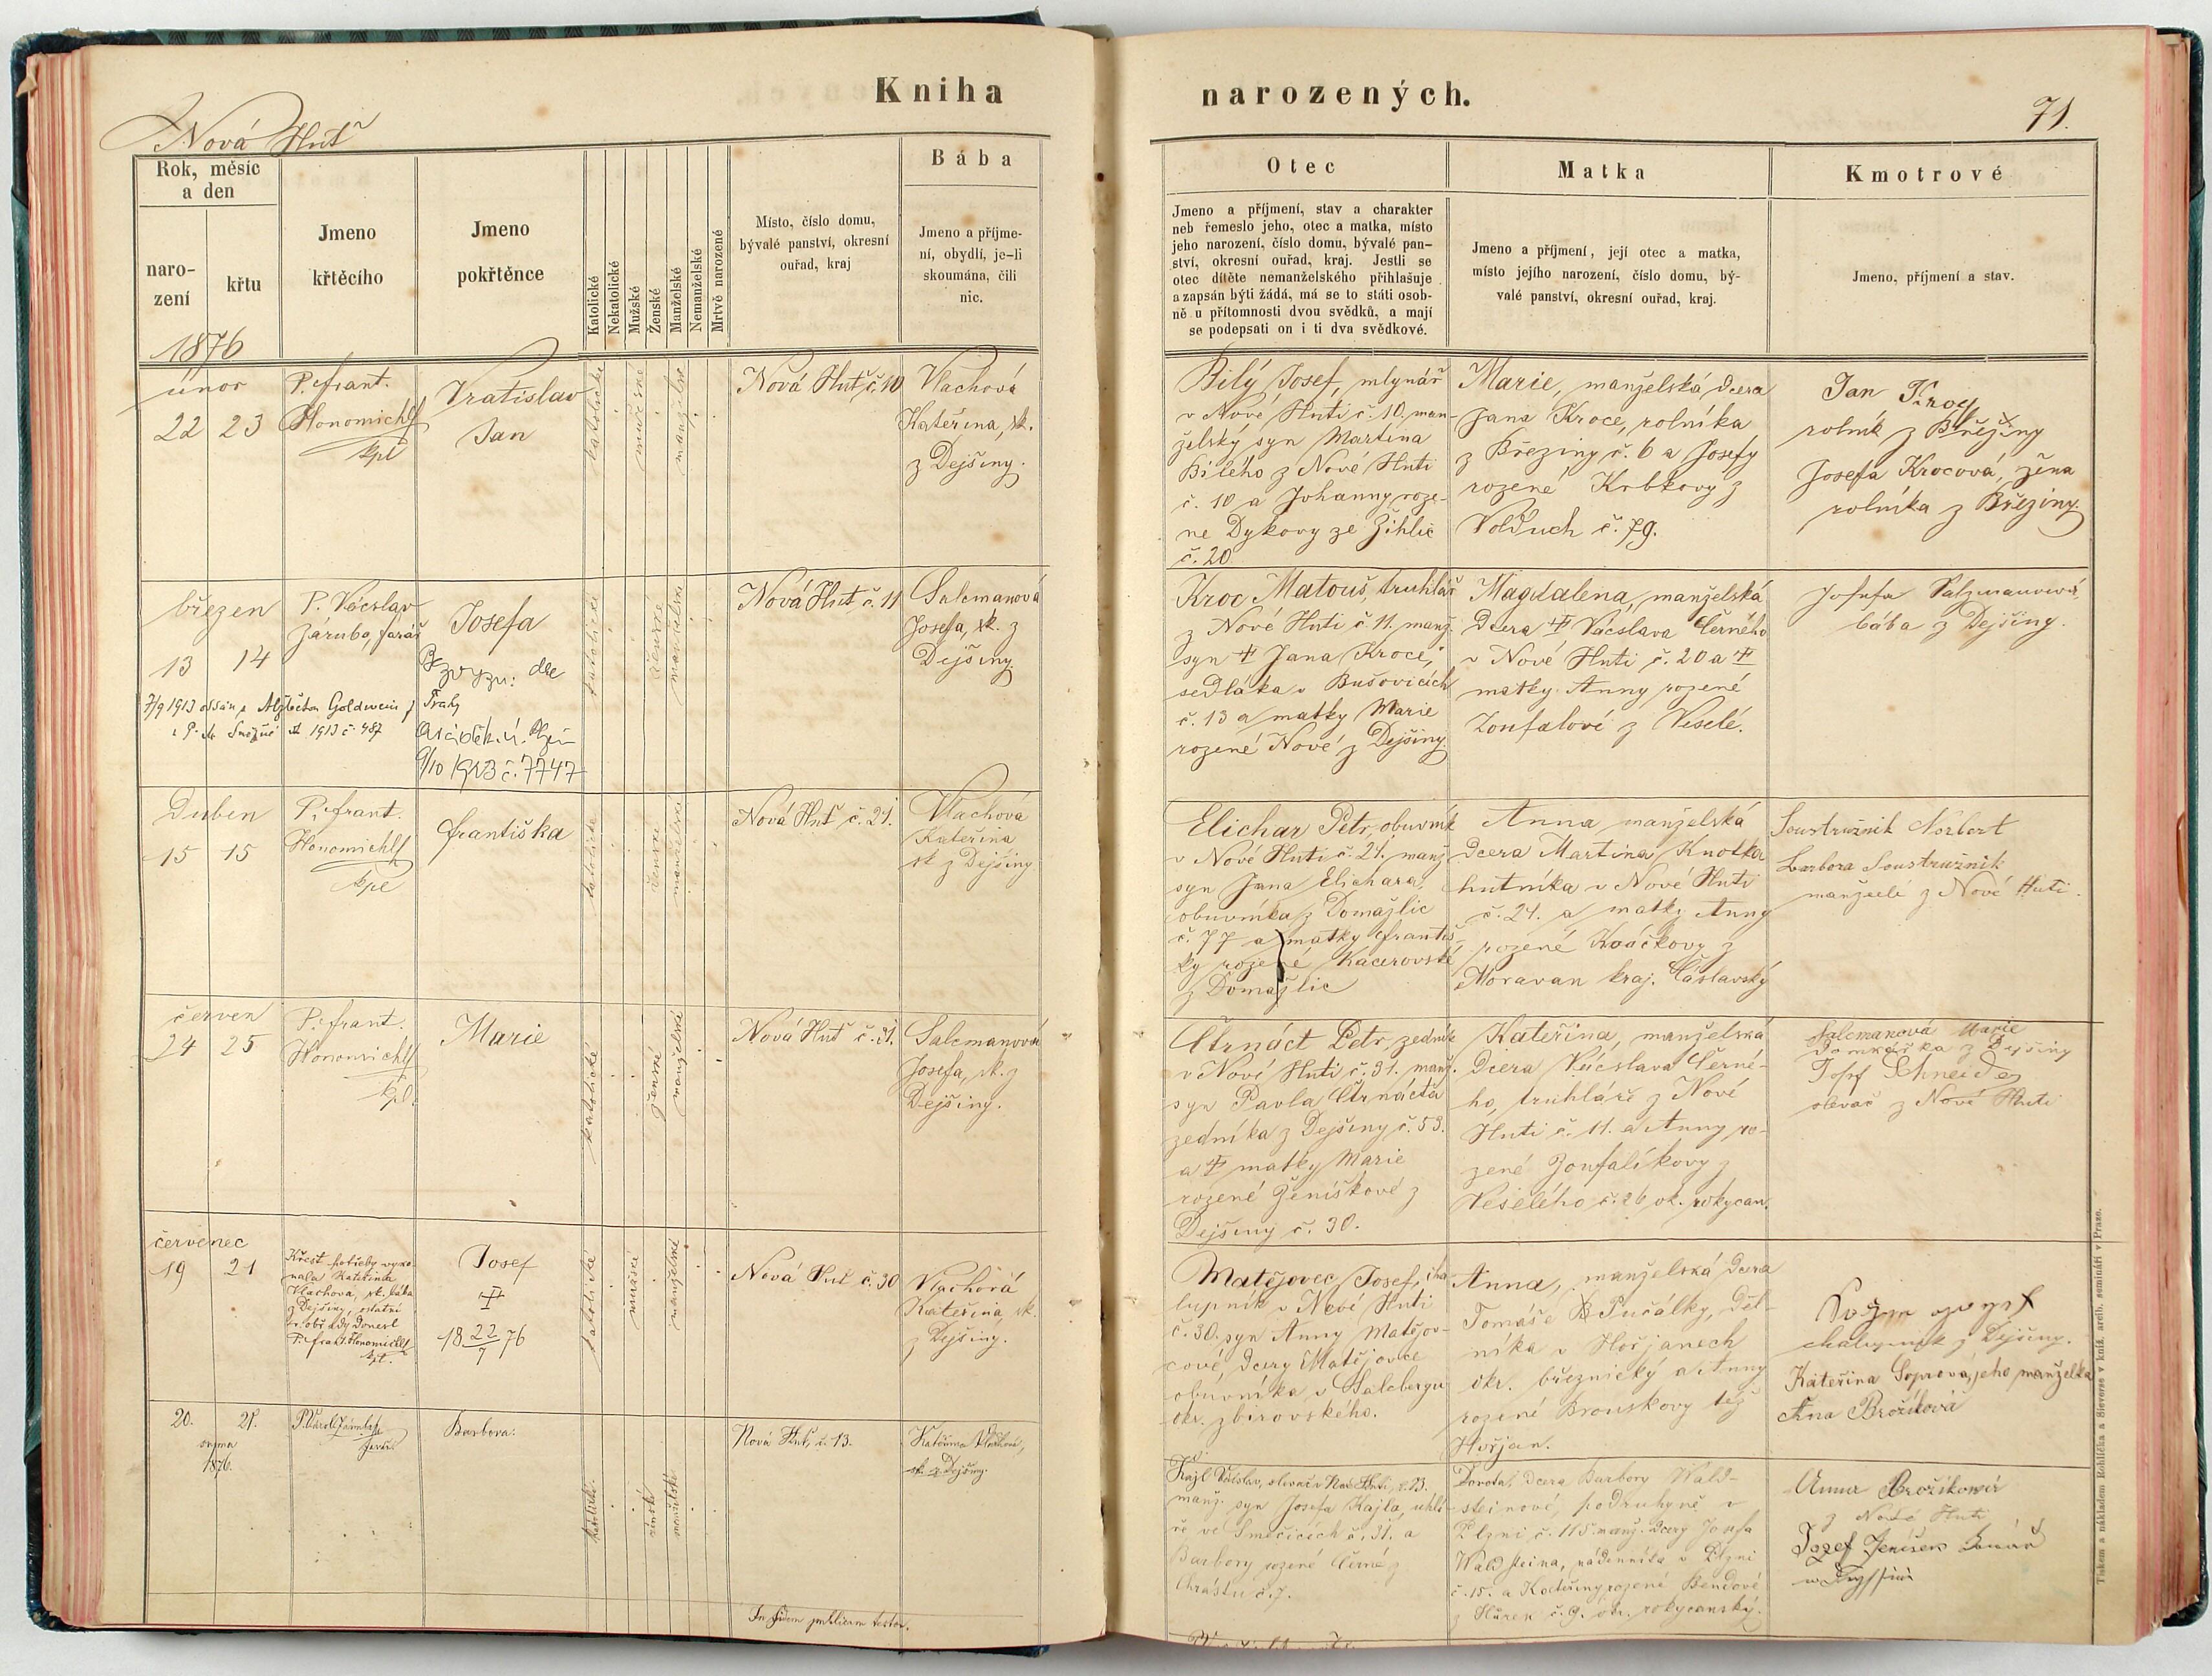 Kniha narozených.
71.
Nová Huť
Rok, měsíc
a den
naro-
zení
křtu
Jmeno
křtěcího
Jmeno
pokřtěnce
Katolické
Nekatolické
Mužské
Ženské
Manželské
Nemanželské
Mrtvě narozené
Místo, číslo domu,
bývalé panství, okresní
ouřad, kraj
Bába
Jmeno a příjme-
ní, obydlí, je-li
skoumána, čili
nic.
Otec
Jmeno a příjmení, stav a charakter
neb řemeslo jeho, otec a matka, místo
jeho narození, číslo domu, bývalé pan-
ství, okresní ouřad, kraj. Jestli se
otec dítěte nemanželského přihlašuje
a zapsán býti žádá, má se to státi osob-
ně u přítomnosti dvou svědků, a mají
se podepsati on i ti dva svědkové.
Matka
Jmeno a příjmení, její otec a matka,
místo jejího narození, číslo domu, bý-
valé panství, okresní ouřad, kraj.
Kmotrové
Jmeno, příjmení a stav.
1876
únor
22 23
P. Frant.
Honomichl
kpl
Vratislav
Jan
katolické
mužské
manželské
Nová Huť č. 10
Vlachová
Kateřina, zk.
z Dejšiny.
Bílý Josef, mlynář
v Nové Huti č. 10. man-
želský syn Martina
Bílého z Nové Huti
č. 10 a Johanny roze-
né Dykovy ze Žihlic
č. 20
Marie, manželská dcera
Jana Kroce, rolníka
z Březiny č. 6 a Josefy
rozené Krbkovy z
Volduch č. 79.
Jan Kroc
rolník z Březiny
Josefa Krocová, žena
rolníka z Březiny
březen
13 14
P. Václav
Záruba, farář
Josefa
7/9 1913
Goldwein
1913 č. 487
9/10 1913 č. 7747
katolické
ženské
manželské
Nová Huť č. 11
Salcmanová
Josefa, zk. z
Dejšiny.
Kroc Matouš, truhlář
z Nové Huti č. 11. manž.
syn † Jana Kroce,
sedláka v Bušovicích
č. 13 a matky Marie
rozené Nové z Dejšiny.
Magdalena, manželská
dcera † Václava Černého
v Nové Huti č. 20 a †
matky Anny rozené
Zoufalové z Veselé.
Josefa Salzmanová
bába z Dejšiny.
Duben
15 15
P. Frant.
Honomichl
kpl
Františka
katolické
ženské
manželské
Nová Huť č. 21.
Vlachova
Kateřina
zk z Dejšiny
Elichar Petr, obuvník
v Nové Huti č. 21. manž
syn Jana Elichara,
obuvníka z Domažlic
č. 77 a matky Františ-
ky rozené Kacerovské
z Domažlic
Anna manželská
dcera Martina Knotka
hutníka v Nové Huti
č. 24. a matky Anny
rozené Kváčkovy z
Moravan kraj. Čáslavský
Soustružník Norbert
Barbora Soustružník
manželé z Nové Huti.
červen
24 25
P. Frant.
Honomichl
kpl.
Marie
katolické
ženské
manželské
Nová Huť č. 31.
Salcmanová
Josefa, zk. z
Dejšiny.
Čtrnáct Petr, zedník
v Nové Huti č. 31. manž.
syn Pavla Čtrnácta
zedníka z Dejšiny č. 53.
a † matky Marie
rozené Ženíškové z
Dejšiny č. 30.
Kateřina, manželská
dcera Václava Černé-
ho, truhláře z Nové
Huti č. 11. a Anny ro-
zené Zoufalíkovy z
Veselého č. 26 ok. rokycan.
Salcmanová Marie
domkářka z Dejšiny
Josef Schneider
slevač z Nové Huti
červenec
19 21
Křest z potřeby vyko-
nala Kateřina
Vlachova, zk. bába
z Dejšiny, ostatní
sv. obřady donesl
P. Frant. Honomichl
kpl.
Josef
†
18 22/7 76
katolické
mužské
manželské
Nová Huť č. 30
Vlachová
Kateřina, zk.
z Dejšiny.
Matějovec Josef, cha-
lupník v Nové Huti
č. 30. syn Anny Matějov-
cové, dcery Matějovce
obuvníka v Salcbergu
okr. zbirovského.
Anna, manželská dcera
Tomáše Pučálky, děl-
níka v Hořjanech
okr. březnický a Anny
rozené Brouskovy též
Hořjan.
chalupník z Dejšiny.
Kateřina Soprová, jeho manželka
Anna Brožíková
20. 21.
srpna
1876.
farář.
Barbora.
katolické.
ženské
manželské
Nová Huť, č. 13.
Kateřina Vlachová,
zk. z Dejšiny.
Kajl Václav, slevač v Nové Huti, č. 13.
manž. syn Josefa Kajla, uhlí-
ře ve Smečicích č. 31. a
Barbory rozené Černé z
Chrástu č. 7.
Dorota, dcera Barbory Wald-
steinové, podruhyně v
Plzni č. 115. manž. dcery Josefa
Waldsteina, nádenníka v Plzni
č. 15. a Kateřiny rozené Bendové
z Hůrek č. 9. okr. rokycanský.
Anna Brožíková
z Nové Huti
Jozef
In fidem publicam testor.
Tiskem a nákladem Rohlíčka a Sieverse v kníž. arcib. semináři v Praze.